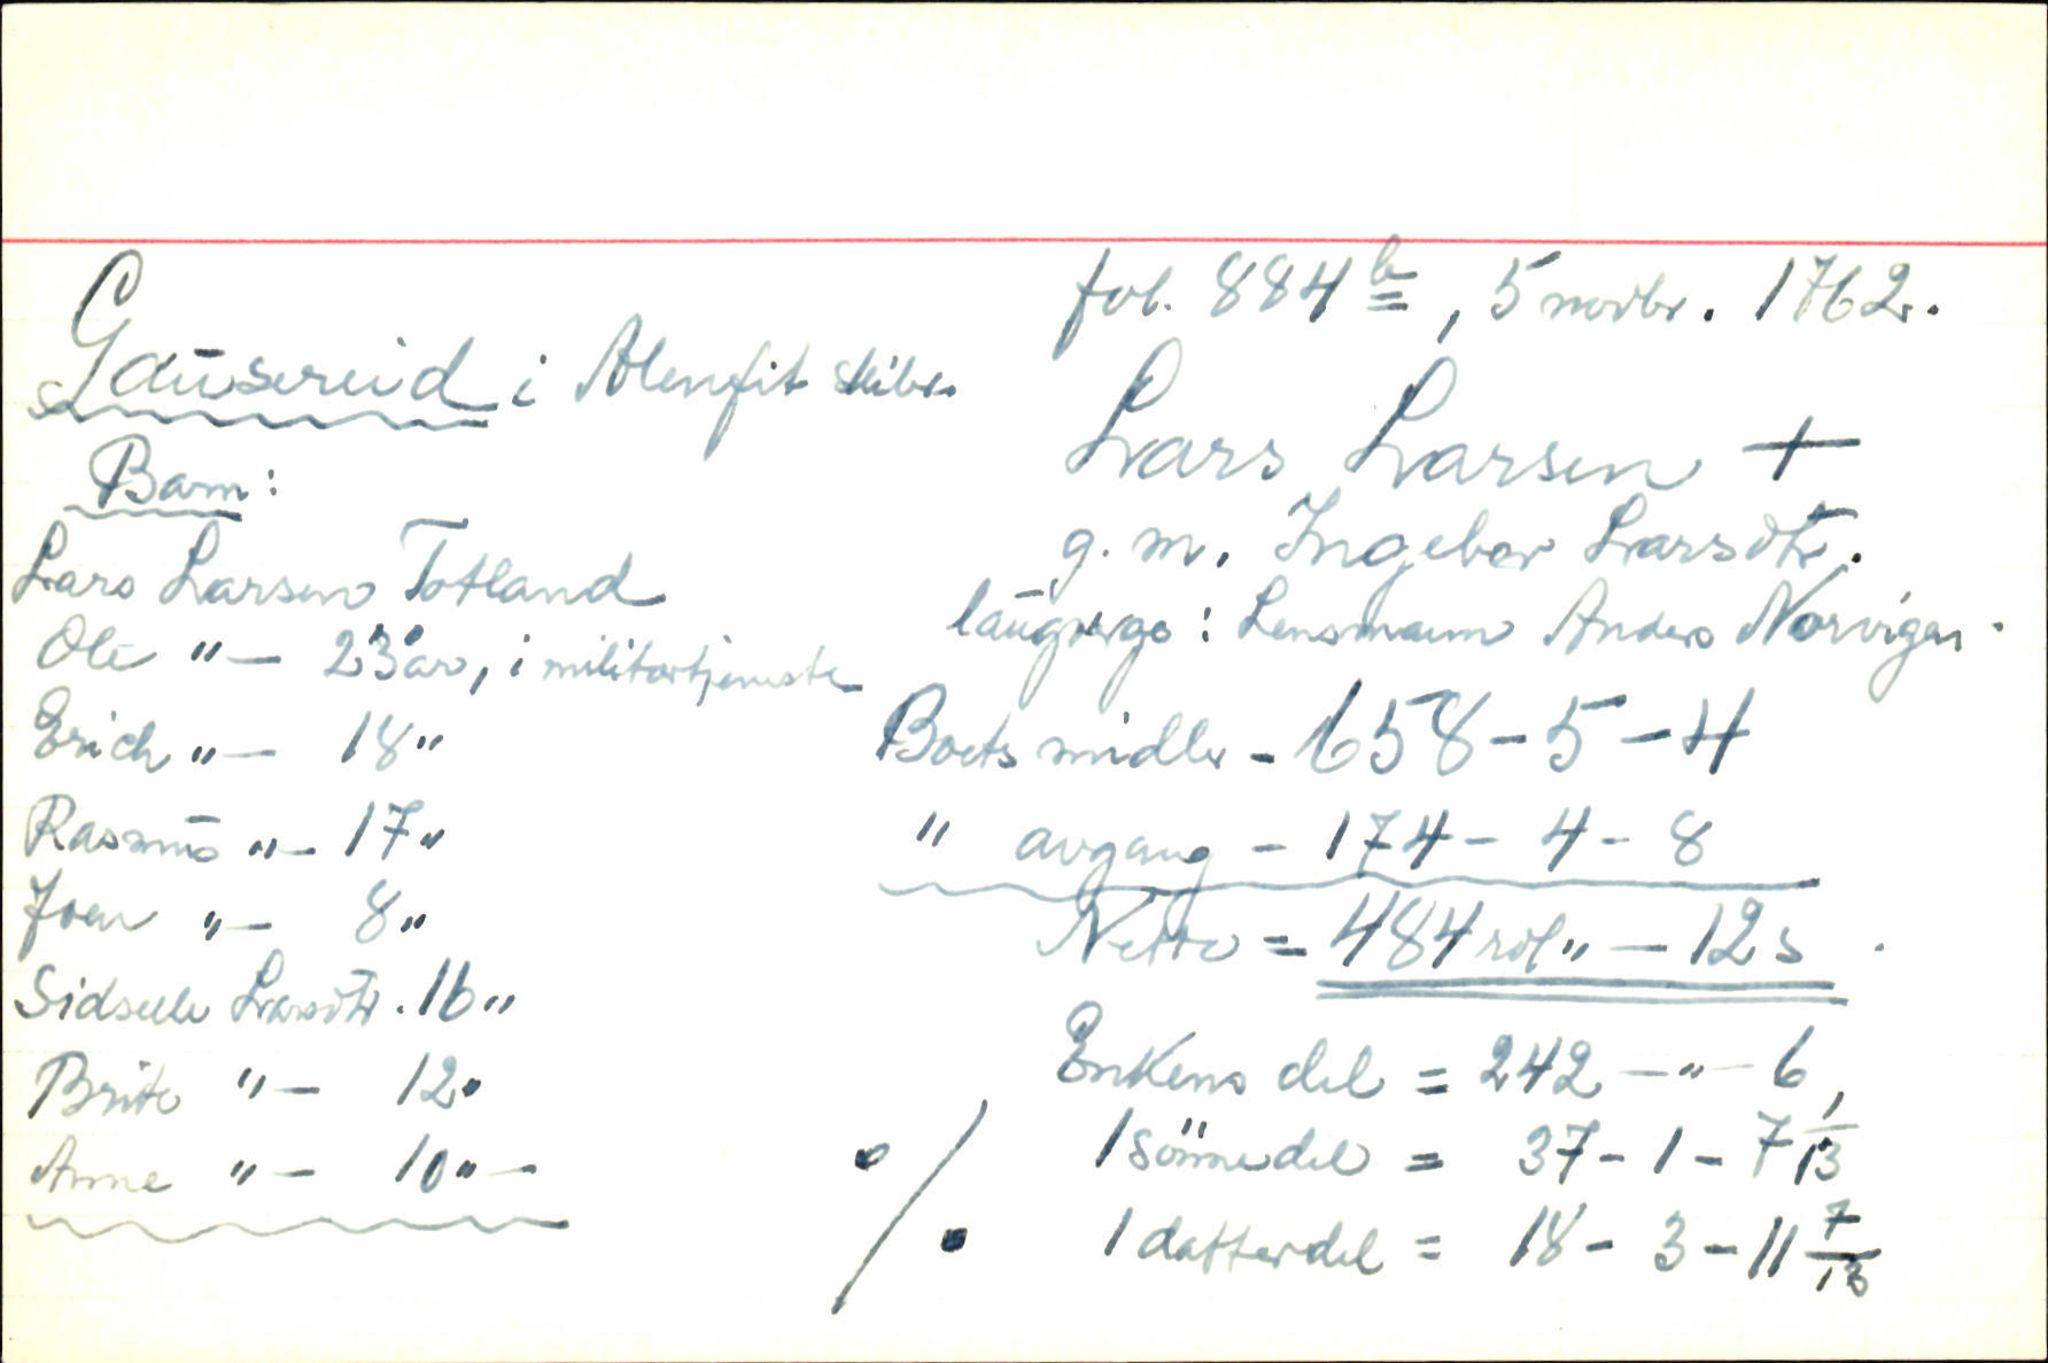 fol. 884 b, 5 novbr. 1762.
Gausereid i Alenfit skibr.
Lars Larsen +
g. m. Ingebor Larsdtr.
laugverge: Lensmann Anders Norvigen.
Barn:
Lars Larsen Totland
Ole " — 23 år, i militærtjeneste
Erich " — 18 "
Rasmus " — 17 "
Joen " — 8 "
Sidselle Larsdtr. 16 "
Brite " — 12 "
Anne " — 10 " —
Boets midler - 658 - 5 - 4
" avgang - 174 - 4 - 8
Netto = 484 rdl " — 12 s
Enkens del = 242 — " — 6
1 sönnedel = 37 - 1 - 7 1/13
1 datterdel = 18 - 3 - 11 7/13